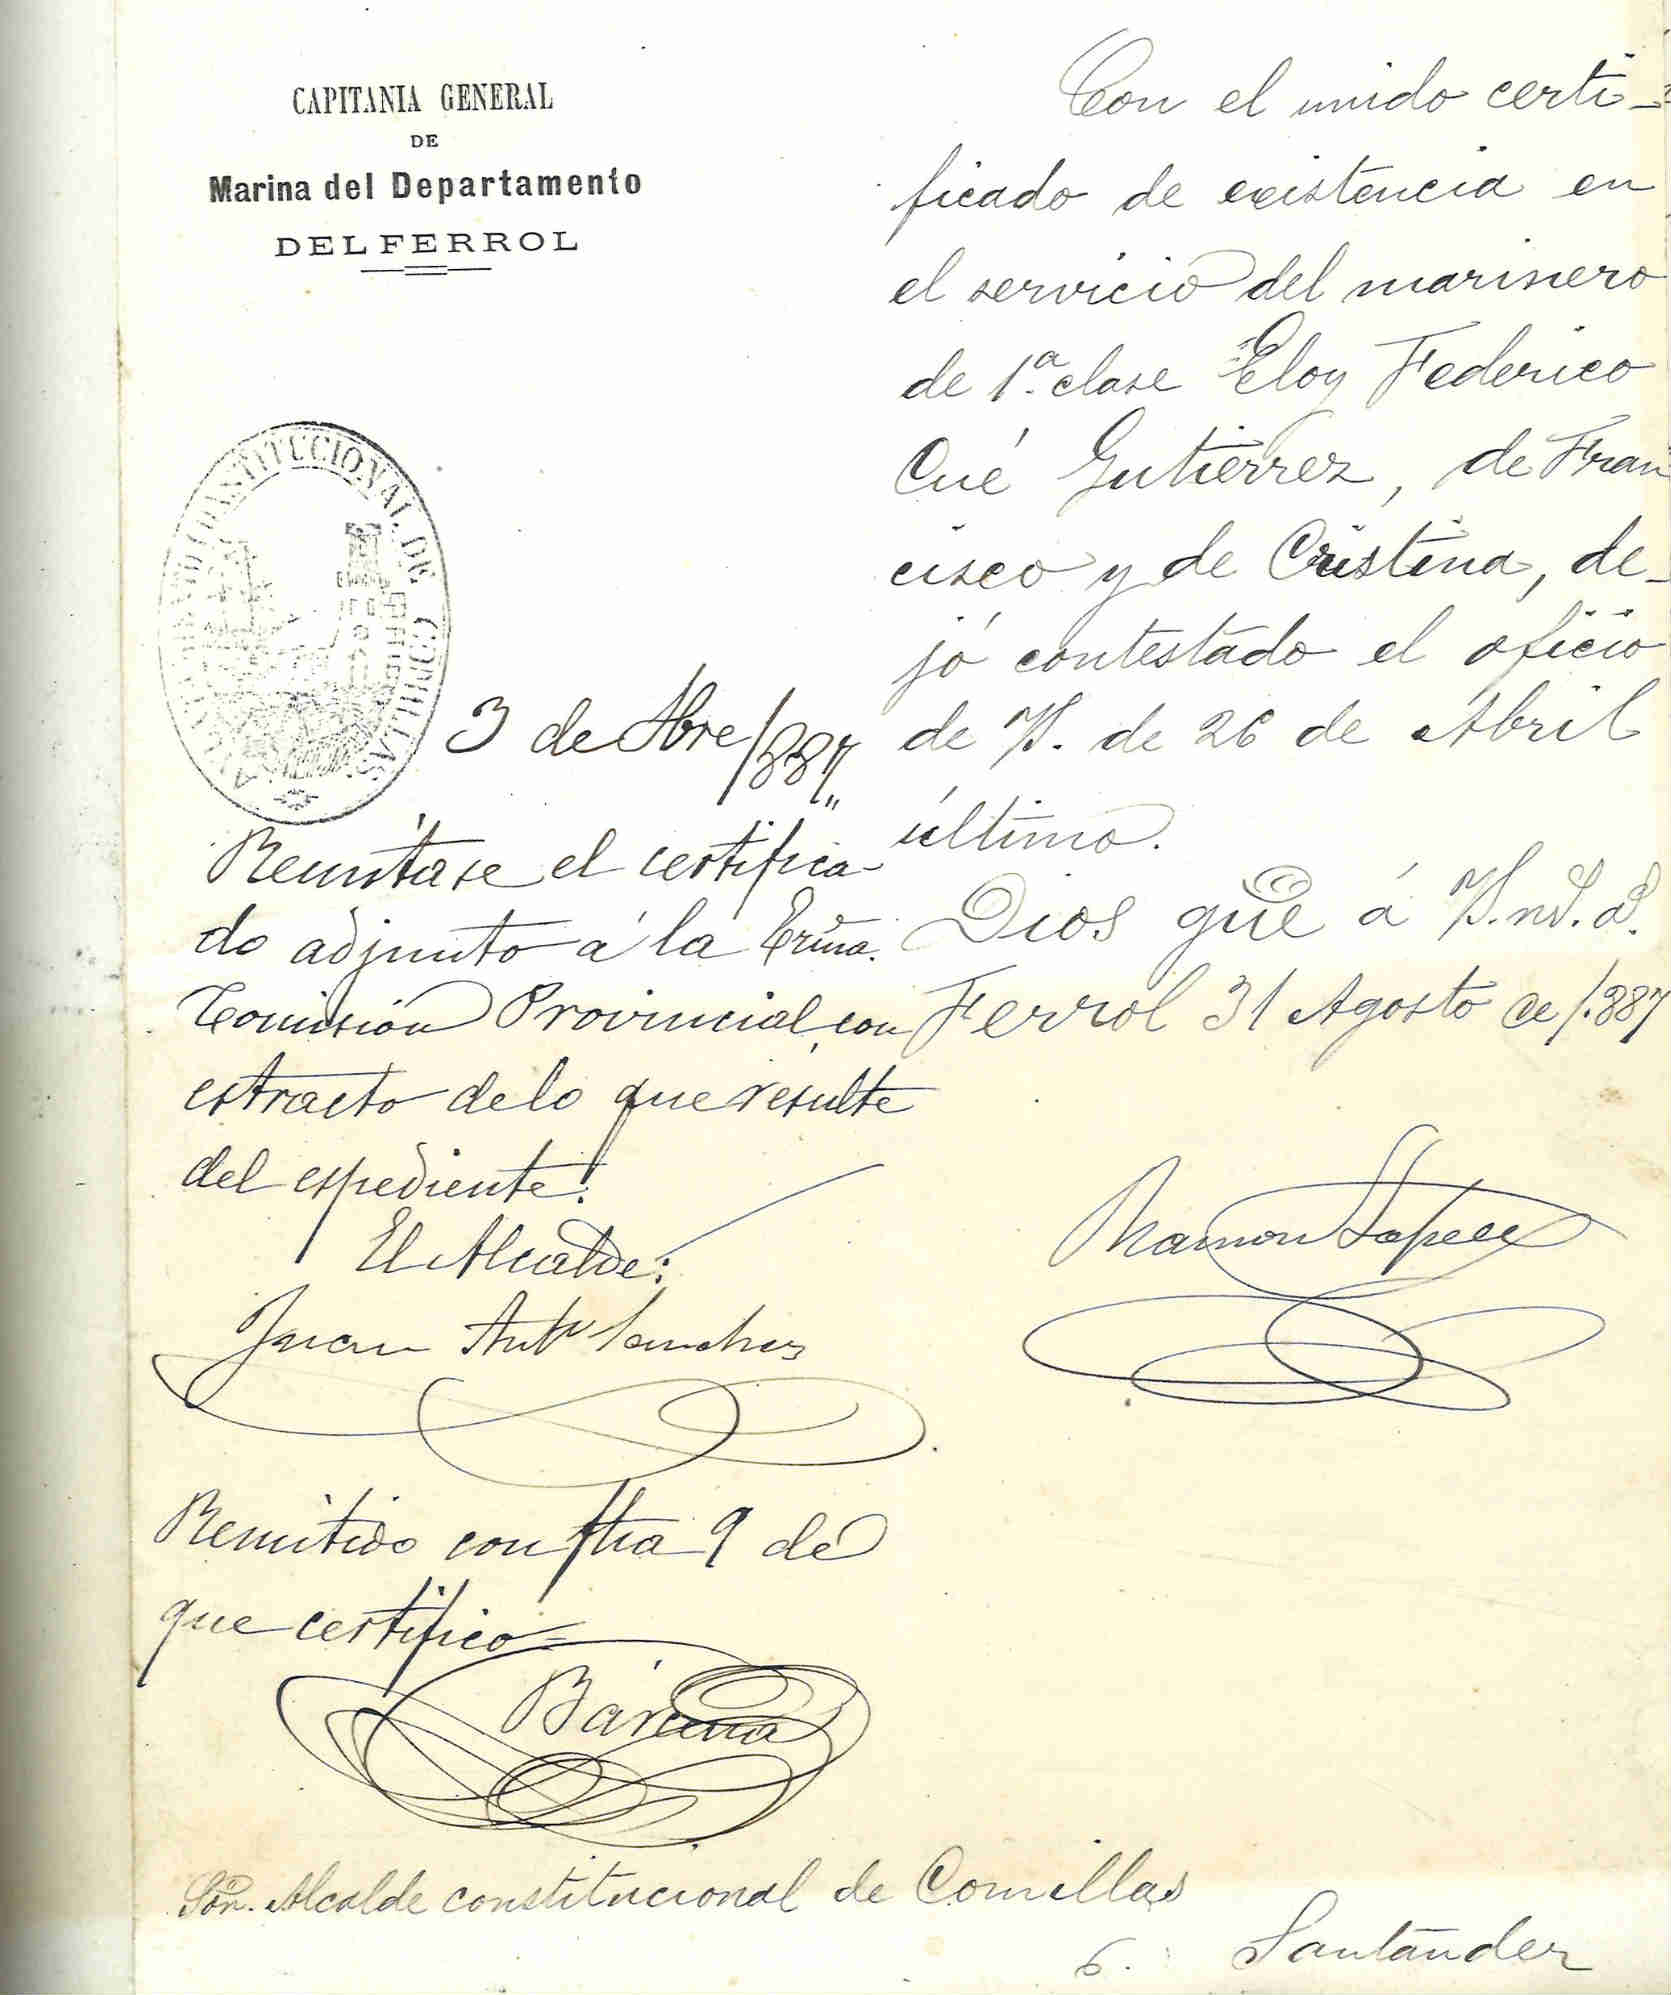 CAPITANIA GENERAL
DE
Marina del Departamento
DEL FERROL
Con el unido certi-
ficado de existencia en
el servicio del marinero
de 1ª. clase Eloy Federico
Cué Gutierrez, de Fran
cisco y de Cristina, de-
jó contestado el oficio
de V. de 26 de Abril
último.
Dios gūe á V. m. s. a.
Ferrol 31 Agosto de 1.887
Ramon Topete
CONSTITUCIONAL DE COMILLAS
3 de Sbre/887,,
Remítase el certifica-
do adjunto á la Excma.
Comisión Provincial, con
estracto de lo que resulte
del espediente.
El Alcalde:
Juan Antº Sanchez
Remitido con fha 9 de
que certifico=
Bárcena
Sōr. Alcalde constitucional de Comillas
6.
Santander